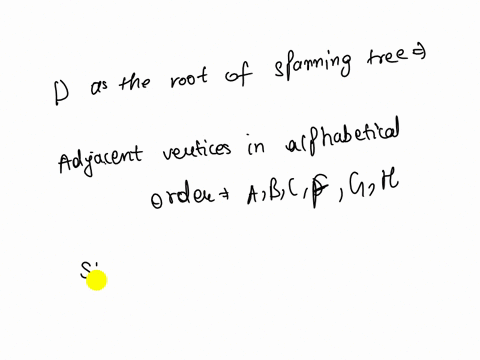 D as the root of spanning tree ⇒
Adjacent vertices in alphabetical
order ⇒ A, B, C, F, G, H
Si